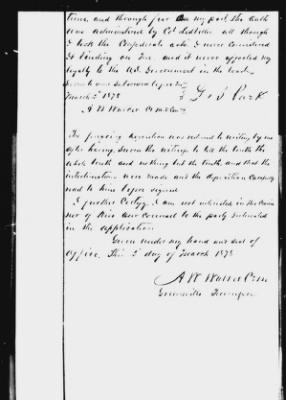 time, and through fear on my part. The oath
was administered by Col Ledbetter all though
I took the Confederate oath I never considered
it binding on me and it never affected my
loyalty to the U.S. Government in the least.
Sworn to and subscribed before me
March 2d 1878
A W Walker Comr
The foregoing deposition was reduced to writing by me
after having sworn the witness to tell the truth the
whole truth and nothing but the truth, and that the
interlineations were made and the deposition carefully
read to him before signed
I further Certify I am not interested in the claim
nor of Kin nor Counsel to the party interested
in the application
Given under my hand and seal of
Office. This 2d day of March 1878
A W Walker Com
Greenville Tennessee